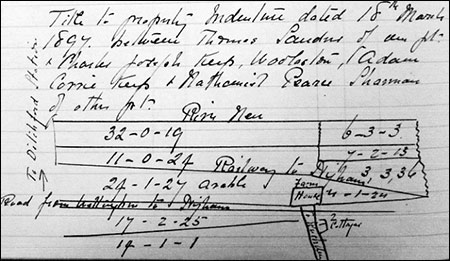 Title to property Indenture dated 18th March
1897 between Thomas Sanders of one pt
& Charles Joseph Keep, Woolaston, (Adam
Corrie Keep & Nathaniel Pearce Sharman
of other pt
River Nen
32-0-19
6-3-3
11-0-24
7-2-13
Railway to Higham
3,3,36
24-1-27 arable
Farm
House
4-1-24
Road from Wellington to Higham
17-2-25
2
Cottages
14-1-1
To Ditchford Station